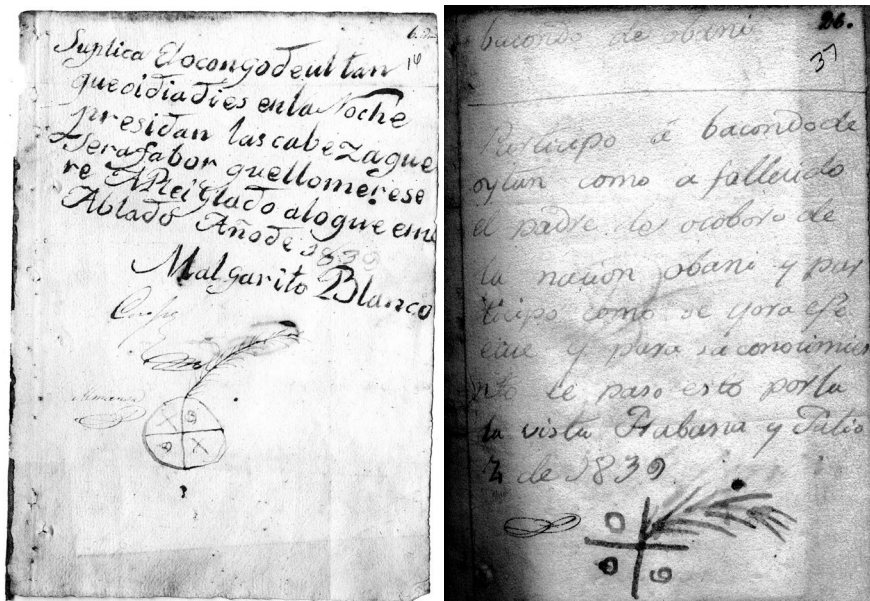 Suplica El ocongo de ultan
que oi dia dies en la Noche
presidan las cabezaque
sera fabor quellomerese
re APlei Glado aloque emi
Ablado Año de 1839
Malgarito Blanco
26.
37
bacondo de obani
Participo á bacondo de
oylan como a fallecido
el padre de ocoboro de
la nacion obani y par
ticipo como se yora efe
ciue y para sa conocimien
nto le paso esto por la
la vista Habana y Julio
2 de 1839